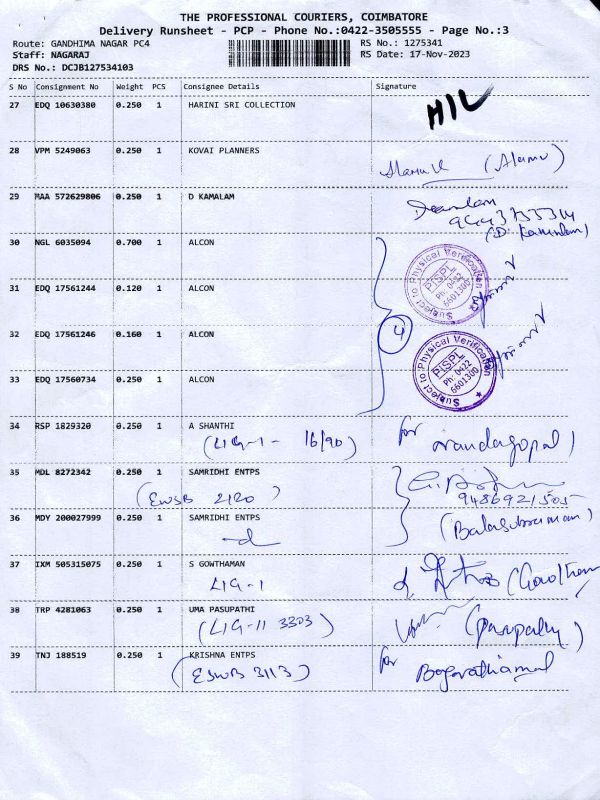 THE PROFESSIONAL COURIERS, COIMBATORE
Delivery Runsheet - PCP - Phone No.:0422-3505555 - Page No.:3
Route: GANDHIMA NAGAR PC4 RS No.: 1275341
Staff: NAGARAJ RS Date: 17-Nov-2023
DRS No.: DCJB127534103
S No Consignment No Weight PCS Consignee Details Signature
27 EDQ 10630380 0.250 1 HARINI SRI COLLECTION
28 VPM 5249063 0.250 1 KOVAI PLANNERS (Alamu)
29 MAA 572629806 0.250 1 D KAMALAM
(D. Kamalam)
30 NGL 6035094 0.700 1 ALCON
Subject to Physical Verification
PISPL
Ph: 0422
6601300
31 EDQ 17561244 0.120 1 ALCON
32 EDQ 17561246 0.160 1 ALCON
4
Subject to Physical Verification
PISPL
Ph: 0422
6601300
33 EDQ 17560734 0.250 1 ALCON
34 RSP 1829320 0.250 1 A SHANTHI
(LIG-I- 16/90) for nandagopal
35 MDL 8272342 0.250 1 SAMRIDHI ENTPS
(EWSB 2120) 9486921505
36 MDY 200027999 0.250 1 SAMRIDHI ENTPS (Balasubramani)
37 IXM 505315075 0.250 1 S GOWTHAMAN
LIG-I
38 TRP 4281063 0.250 1 UMA PASUPATHI
(LIG-II 3303) (Pasupathy)
39 TNJ 188519 0.250 1 KRISHNA ENTPS
(ESWB 3113) for Bagavathiamal